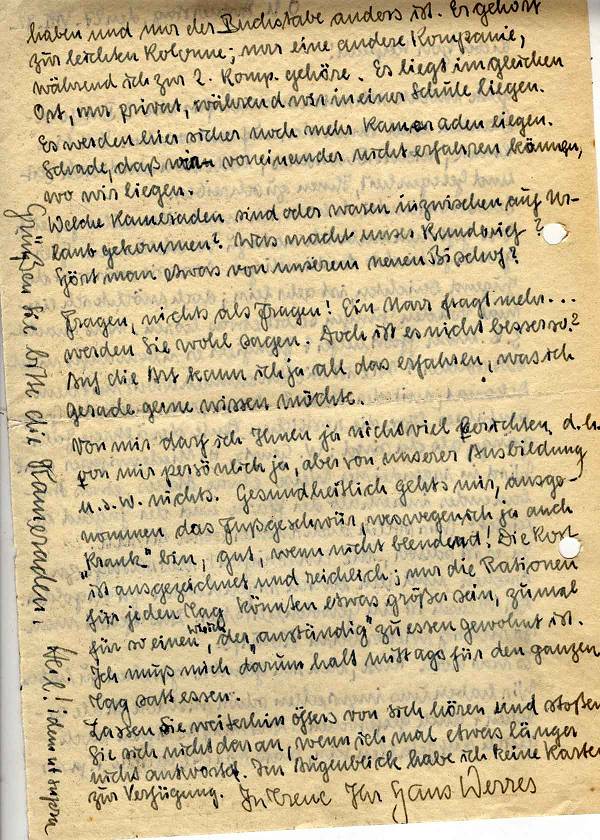 haben und nur der Buchstabe anders ist. Er gehört
zur leichten Kolonne; nur eine andere Kompanie,
während ich zur 2. Komp. gehöre. Es liegt im gleichen
Ort, nur privat, während wir in einer Schule liegen.
Es werden hier sicher noch mehr Kameraden liegen.
Schade, daß wir voneinander nicht erfahren können,
wo wir liegen.
Welche Kameraden sind oder waren inzwischen auf Ur-
laub gekommen? Was macht unser Rundbrief?
Hört man etwas von unserem neuen Bischof?
Fragen, nichts als Fragen! Ein Narr fragt mehr...
werden Sie wohl sagen. Doch ist es nicht besser so?
Auf die Art kann ich ja all das erfahren, was ich
gerade gerne wissen möchte.
Von mir darf ich Ihnen ja nicht viel berichten, d.h.
von mir persönlich ja, aber von unserer Ausbildung
u.s.w. nichts. Gesundheitlich gehts mir, ausge-
nommen das Fußgeschwür, weswegen ich ja auch
"krank" bin, gut, wenn nicht blendend! Die Kost
ist ausgezeichnet und reichlich; nur die Rationen
für jeden Tag könnten etwas größer sein, zumal
für so einen, der "anständig" zu essen gewohnt ist.
Ich muß mich darum halt mittags für den ganzen
Tag satt essen.
Lassen Sie weiterhin öfters von sich hören und stoßen
Sie sich nicht daran, wenn ich mal etwas länger
nicht antworte. Im Augenblick habe ich keine Karten
zur Verfügung. In Treue Ihr Hans Werres
Grüßen Sie bitte die Kameraden. Heil! idem ut supra